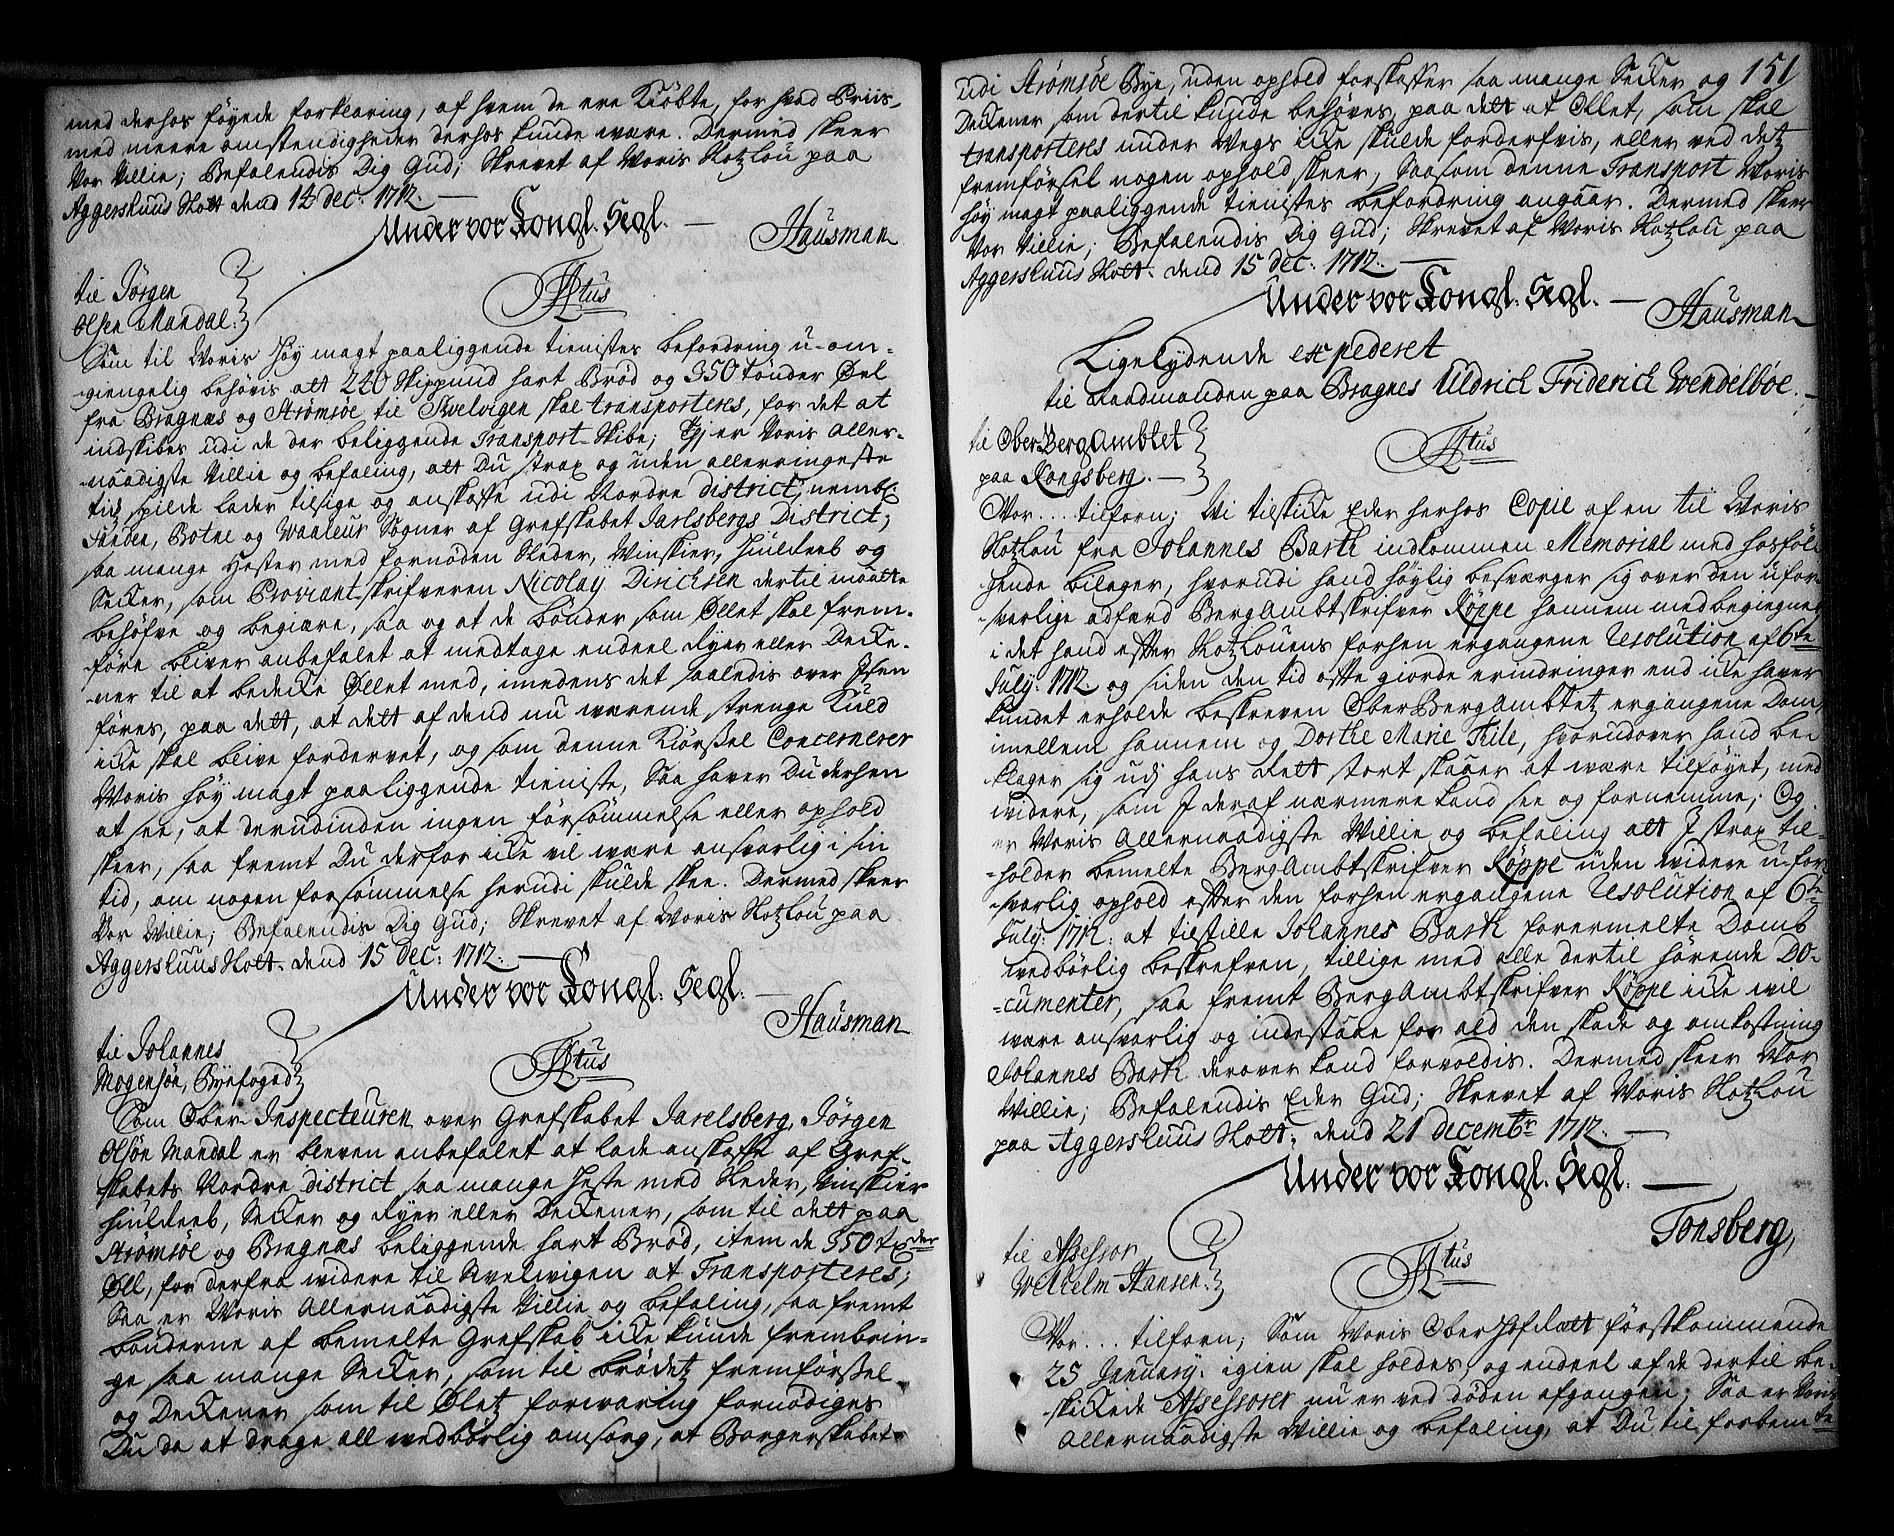 med derhos føyede forklaring, af hvem de ere Kiöbte, for hvad Priis,
med meere omstendigheder derhos kunde være. Dermed skeer
Vor Villie; Befalendis Dig Gud; Skrevet af Voris Slotzlou paa
Aggershuus Slott dend 12 dec: 1712.
Under vor Kongl. Segl.
Hausman
til Jörgen
Olsen Mandal.
F4tus
Som til Voris Høy magt paaliggende tienistes befordring u-om-
giengelig behövis att 240 Skippund hart Bröd og 350 tönder Øel
fra Bragnæs og Strömsöe til Svelvigen skal transporteres, for det at
indskibes udi de der beliggende Transport-Skibe; Thj er Voris Aller-
naadigste Villie og befaling, att Du strax og uden allerringeste
tidz spilde lader tilsige og anskaffe udi Nordre district, nembl:
Sanden, Botne og Waaleur Sogner af Grefskabet Jarlsbergs District,
saa mange Hester med fornöden Sleder, Winskier, Hiulreeb og
Secker, som Proviantskrifveren Nicolaij Dirichsen dertil maatte
behöfve og begiære, saa og at de bönder som Øllet skal frem-
före bliver anbefalet at medtage endeel Ryer eller Decke-
ner til at bedecke Øllet med, imedens det saaledis over Isen
föres, paa dett, at dett af dend nu værende strenge Kuld
icke skal blive fordervet, og som denne Kiörssel Concernerer
Voris høy magt paaliggende tieniste, Saa haver Du derhen
at see, at derudinden ingen försömmelse eller ophold
skeer, saa fremt Du derfor icke vil være ansvarlig i sin
tid, om nogen forsömmelse herudi skulde skee. Dermed skeer
Vor Villie; Befalendis Dig Gud; Skrevet af Voris Slotzlou paa
Aggershuus Slott. dend 15 dec: 1712.
Under vor Kongl. Segl.
Hausman
til Johannes
Mogensön, Byefoged
F4tus
Som Ober-Inspecteuren over Grefskabet Jarelsberg, Jörgen
Olsön Mandal er bleven anbefalet at lade anskaffe af Gref-
skabets Nordre district saa mange Heste med Sleder, Vinskier
Hiulreeb, Secker og Ryer eller Deckener, som til dett paa
Strömsöe og Bragnæs beliggende hart Bröd, item de 350 tönder
Øll, for derfra videre til Svelvigen at Transporteres;
Saa er Voris Allernaadigste Villie og befaling, saa fremt
bönderne af bemelte Grefskab icke kunde frembrin-
ge saa mange Secker, som til brödetz fremförssel
og Deckener som til Øletz forvaring fornödiges
Du da at drage all vedbörlig omsorg, at Borgerskabet
151
udi Strømsøe Bye, uden ophold forskaffer saa mange Secker og
Deckener som dertil kunde behöves, paa dett at Øllet, som skal
transporteres under Vegs icke skulde forderfvis, eller ved det
fremförsel nogen ophold skeer, Saasom denne Transport Voris
høy magt paaliggende tienistes befordring angaar. Dermed skeer
Vor Villie; Befalendis Dig Gud; Skrevet af Voris Slotzlou paa
Aggershuus Slott. dend 15 dec: 1712.
Under vor Kongl. Segl.
Hausman
Ligelydende expederet
til Raadmanden paa Bragnes Uldrich Friderich Wendelboe.
til OberBergAmbtet
paa Kongsberg.
F4tus
Vor... tilforn; Vi tilskicke Eder herhos Copie af en til Voris
Slotzlou fra Johannes Barth indkommen Memorial med hosföl-
gende bilager, hvorudi hand höylig besværger sig over den ufor-
svarlige adfærd BergAmbtskrifver Köppe hannem med begiegnet
i det hand efter Slotzlouens forhen ergangene Resolution af 6te
July: 1712. og siden den tid ofte giorde erindringer end icke haver
kundet erholde beskreven OberBergAmbtetz ergangene Dom
imellem hannem og Dorthe Marie Thile, hvorudover hand be-
klager sig udj hans Rett stort skaar at være tilföyet, med
videre, som I deraf nærmere kand see og fornemme; Og
er Voris Allernaadigste Willie og befaling att I strax til-
holder bemelte BergAmbtskrifver Köppe uden videre ufor-
svarlig ophold efter den forhen ergangene Resolution af 6te
July: 1712: at tilstille Johannes Barth forermelte Domb
vedbörlig beskrefven, tillige med alle dertil hörende Do-
cumenter, saa fremt BergAmbtskrifver Köppe icke vil
være ansvarlig og indestaae for ald den skade og omkostning
Johannes Barth derover kand forvoldis. Dermed skeer Vor
Willie; Befalendis Eder Gud; Skrevet af Voris Slotzlou
paa Aggershuus Slott; dend 21 decembr 1712.
Under vor Kongl. Segl.
Tonsberg,
til Assessor
Welhelm Hansen.
F4tus
Vor... tilforn; Som Voris OberHofRett förstkommende
25 January. igien skal holdes, og endeel af de dertil be-
skickede Assessorer nu er ved döden afgangen; Saa er Voris
Allernaadigste Willie og befaling, at Du til forbemte